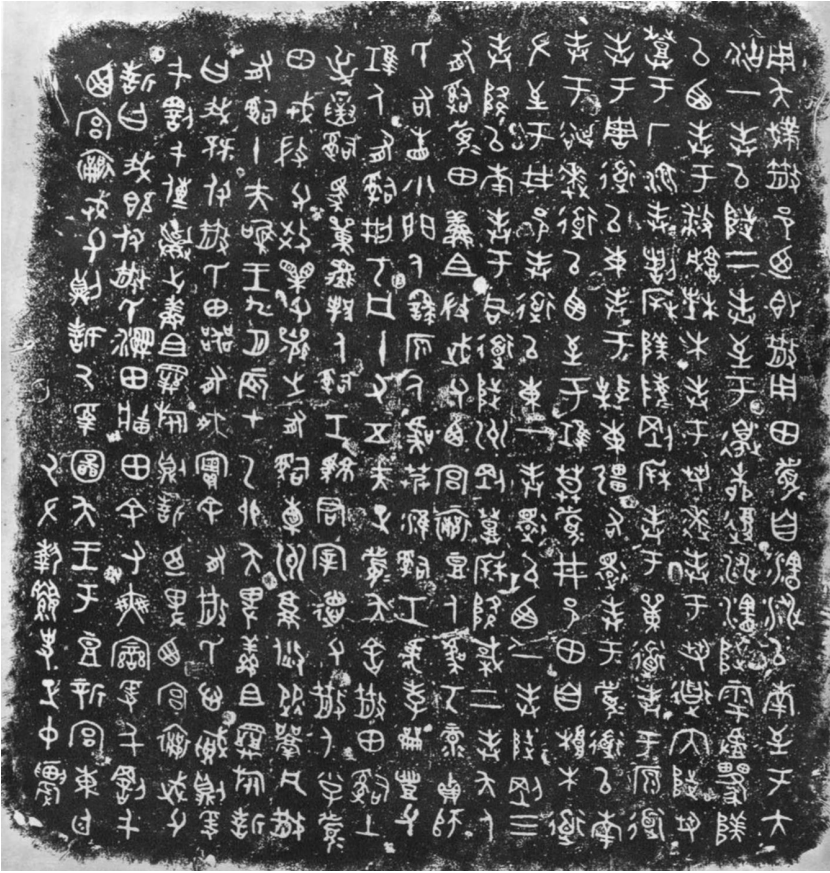 用夨撲散邑乃即散用田眉自瀗涉以南至于大
沽一封以陟二封至于邊柳復涉瀗陟雩
以西封于播城楮木封于芻逨封于芻道内陟芻
登于厂湶封陵剛封于道封于原道
封于周道以東封于東疆右還封于眉道以南
封于逨道以西至于莫眉井邑田自根木道
左至于井邑封道以東一封還以西一封陟剛三
封降以南封于同道陟州剛登降棫二封夨人
有司眉田鮮且微武父西宮襄豆人虞丂彔貞師
氏右眚小門人繇原人虞艿淮司工虎孝龠豐父
人有司刑丂凡十又五夫正眉夨舍散田司土
屰司馬單人司工君宰德父散人小子眉
田戎微父效父襄之有司橐州從凡散
有司十夫唯王九月辰才乙卯夨卑鮮且旅誓
曰我既付散氏田器有爽實余有散氏心賊則爰
千罰千傳棄之鮮且旅則誓乃卑西宮襄武父
誓曰我既付散氏濕田牆田余有爽爰千罰千
西宮襄武父則誓厥受圖夨王于豆新宮東廷
厥左執要史正中農